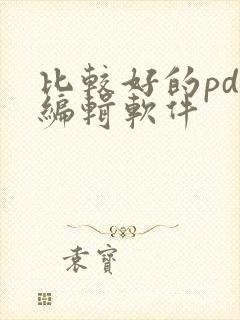 比較好的pd
編輯軟件
袁寶